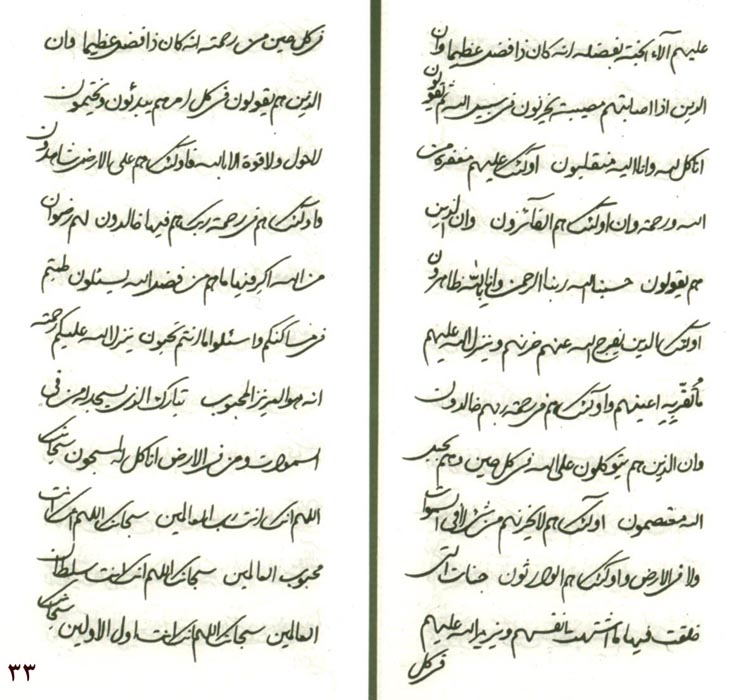 عليهم آلاء الجنة بفضله انه كان ذا فضل عظيما وان
الذين اذا اصابتهم مصيبة يحزنون في سبيل الله ثم يقولون
انا كل لله وانا اليه منقلبون اولئك عليهم مغفرة من
الله ورحمة وان اولئك هم الفائزون وان الذين
هم يقولون حسبنا الله ربنا الرحمن وانا بالله ظاهرون
اولئك الذين يفرج الله عنهم حزنهم وينزل الله عليهم
ما تقر به اعينهم واولئك هم في رحمة ربهم خالدون
وان الذين هم يتوكلون على الله في كل حين وهم بحبل
الله معتصمون اولئك هم لا يحزنهم من شيء لا في السموات
ولا في الارض واولئك هم الوارثون جنات التي
خلقت فيها ما اشتهت انفسهم ويزيد الله عليهم
في كل
في كل حين من رحمته انه كان ذا فضل عظيما وان
الذين هم يقولون في كل امرهم يبدئون ويختمون
لا حول ولا قوة الا بالله فاولئك هم على الارض شاهدون
واولئك هم في رحمة ربك هم فيها خالدون لهم رضوان
من الله اكبر فيها ما هم من فضل الله يسئلون طبتم
في مساكنكم واسئلوا ما انتم تحبون ينزل الله عليكم رحمته
انه هو العزيز المحبوب تبارك الذي يسجد له من في
السموات ومن في الارض انا كل له لمسبحون سبحانك
اللهم انك انت رب العالمين سبحانك اللهم انك انت
محبوب العالمين سبحانك اللهم انك انت سلطان
العالمين سبحانك اللهم انك انت اول الاولين سبحانك
٣٣